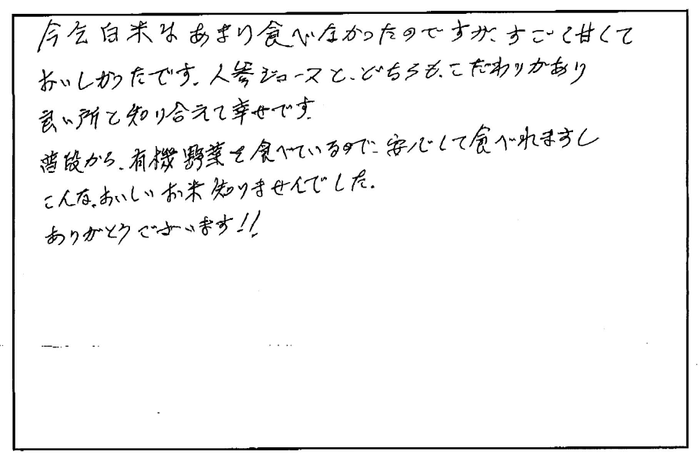 今迄白米はあまり食べなかったのですが、すごく甘くて
おいしかったです。人参ジュースと、どちらも、こだわりがあり
良い所と知り合えて幸せです。
普段から、有機野菜を食べているので、安心して食べれますし
こんな、おいしいお米知りませんでした。
ありがとうございます!!